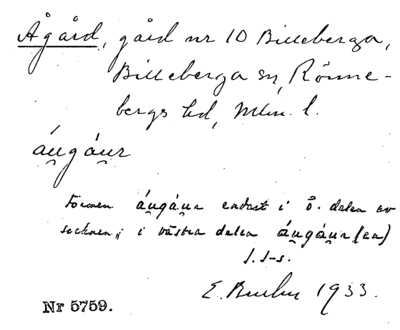 Ågård, gård nr 10 Billeberga,
Billeberga sn, Rönne-
bergs hd, Mlm. l.
áu̯gáu̯r
Formen áu̯gáu̯r endast i ö. delen av
socknen; i västra delen áu̯gáu̯r (en)
J. J-s.
E. 1933.
Nr 5759.